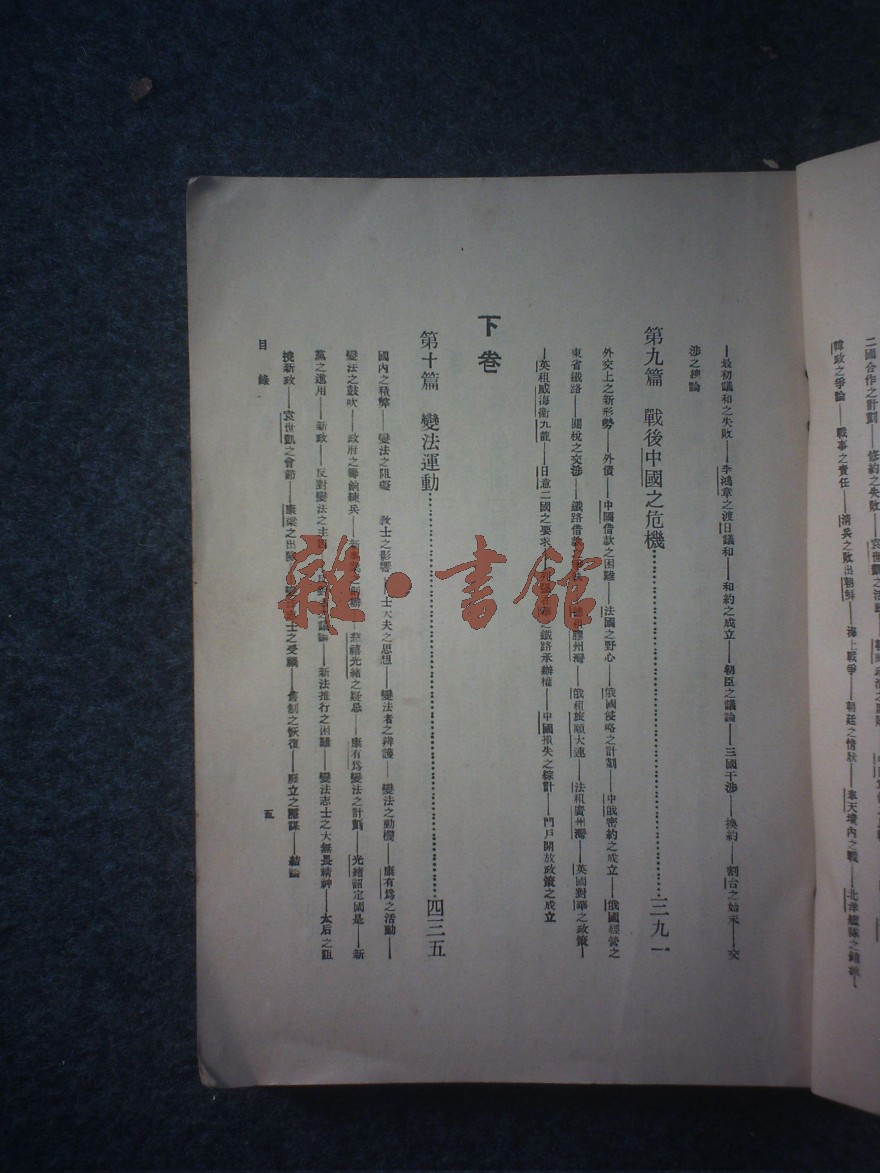 二國合作之計劃——修約之失敗——袁世凱之活動
韓政之爭論——戰事之責任——淸兵之敗出朝鮮——海上戰爭——朝廷之情狀——奉天境內之戰——北洋艦隊之
——最初議和之失敗——李鴻章之渡日議和——和約之成立——朝臣之議論——三國干涉——換約——割台之始末——交
涉之總論
第九篇 戰後中國之危機……三九一
外交上之新形勢——外債——中國借款之困難——法國之野心——俄國侵略之計劃——中俄密約之成立——俄國經營之
東省鐵路——關稅之交涉——鐵路借款 租膠州灣——俄租旅順大連——法租廣州灣——英國對華之政策——
——英租威海衞九龍——日意二國之要求 鐵路承辦權——中國損失之綜計——門戶開放政策之成立
下卷
第十篇 變法運動……四三五
國內之積弊——變法之阻礙 敎士之影響——士大夫之思想——變法者之辨護——變法之動機——康有爲之活動——
變法之鼓吹——政府之籌餉練兵——慈禧光緖之疑忌——康有爲變法之計劃——光緖詔定國是——新
黨之進用——新政——反對變法之 新法推行之困難——變法志士之大無畏精神——太后之阻
撓新政——袁世凱之會節——康梁之出 士之受禍——舊制之恢復——廢立之陰謀——結論
目錄
五
雜·書館